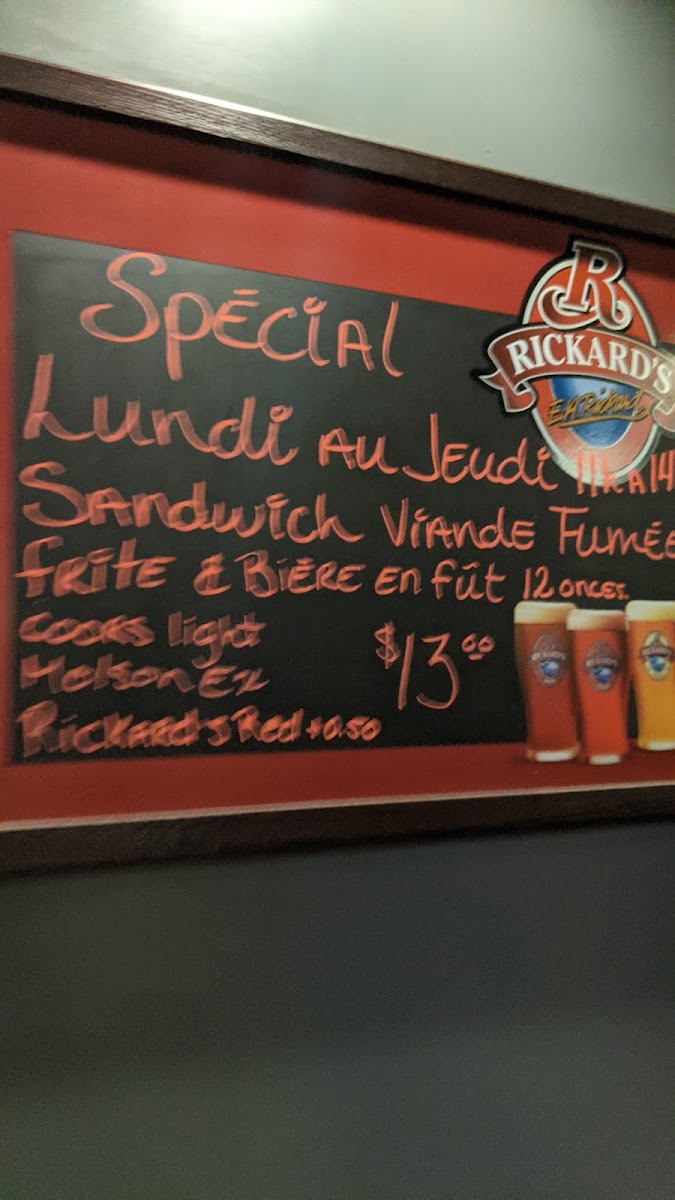 SPÉCIAL
R
RICKARD'S
E.H. Rickard
Lundi AU JEUDI 11h à 14
SANDWICH VIANDE FUMÉE
FRITE & BIÈRE EN FÛT 12 ONCES.
COORS light
Molson EX
$13.00
RICKARD'S Red +0.50
RICKARD'S
RICKARD'S
RICKARD'S